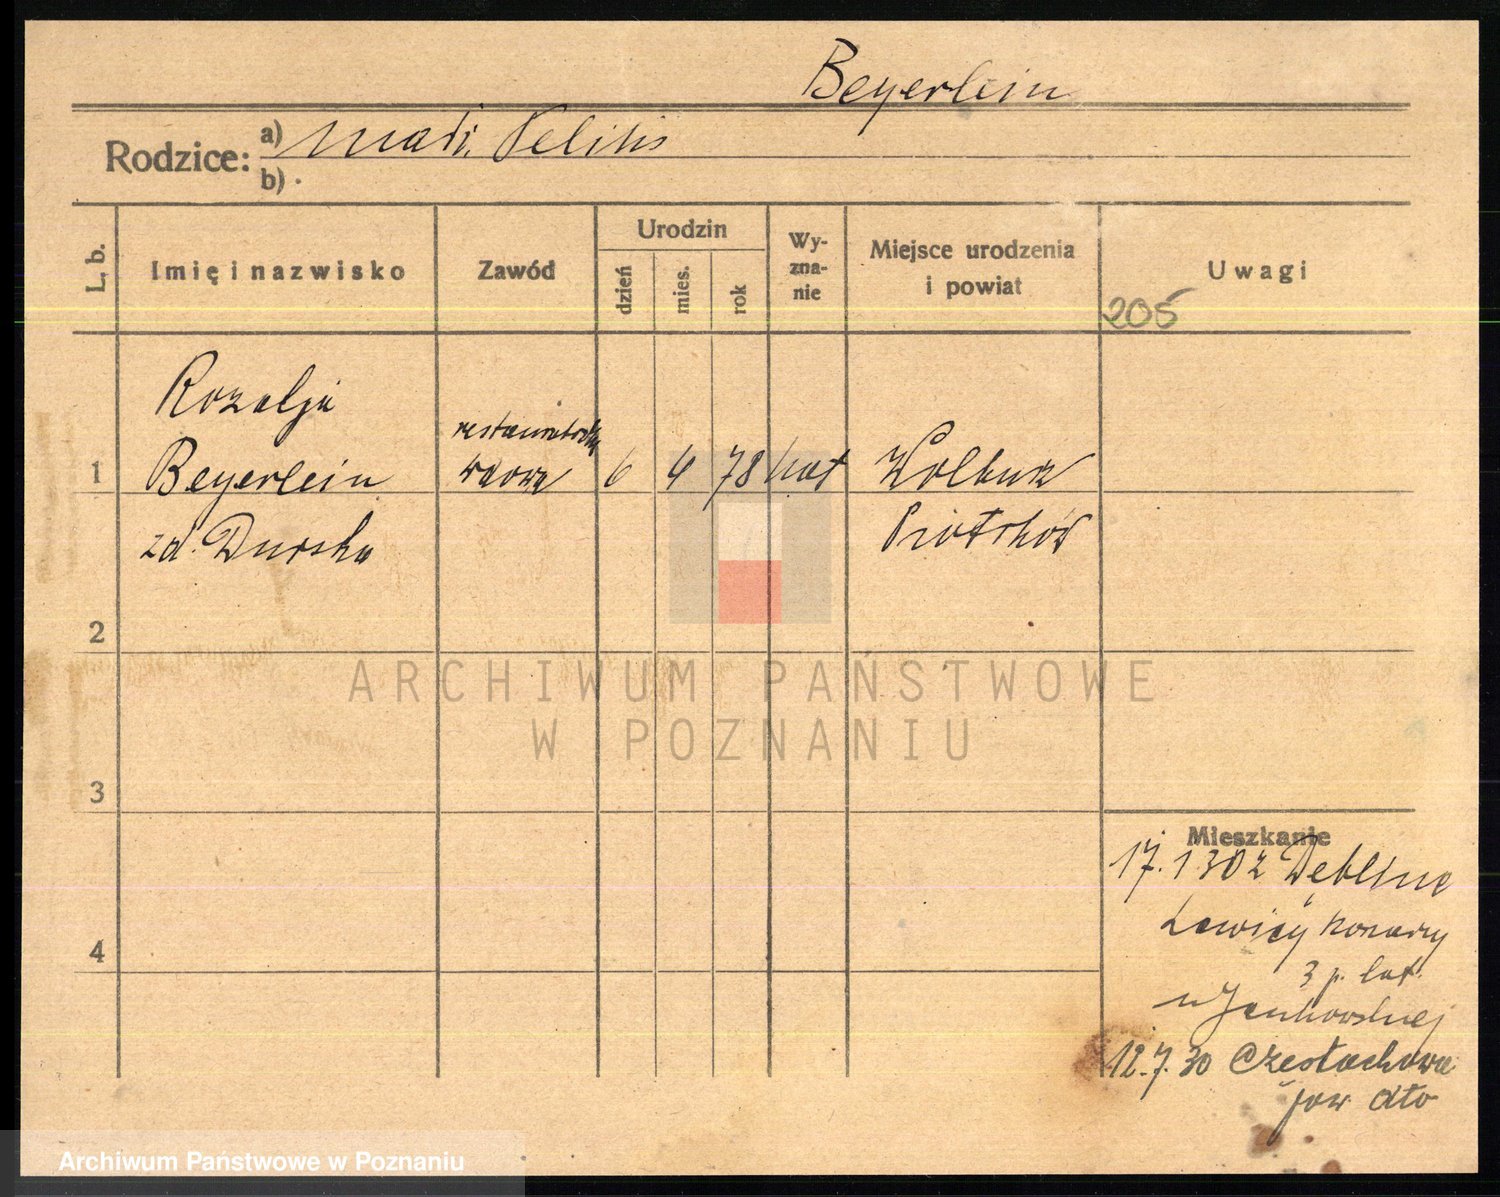 Beyerlein
Rodzice:
a)
b)
L. b.
Imię i nazwisko
Zawód
Urodzin
dzień
mies.
rok
Wy-
zna-
nie
Miejsce urodzenia
i powiat
Uwagi
205
1
Rozalja
Beyerlein
zd. Durska
wdowa
6
4
78
kat
Wolburz
Piotrków
2
3
4
ARCHIWUM PAŃSTWOWE
W POZNANIU
Mieszkanie
17. 1 30 z Dęblina
3 p.
u Jankowskiej
12. 7. 30 Częstochowa
pow dto
Archiwum Państwowe w Poznaniu